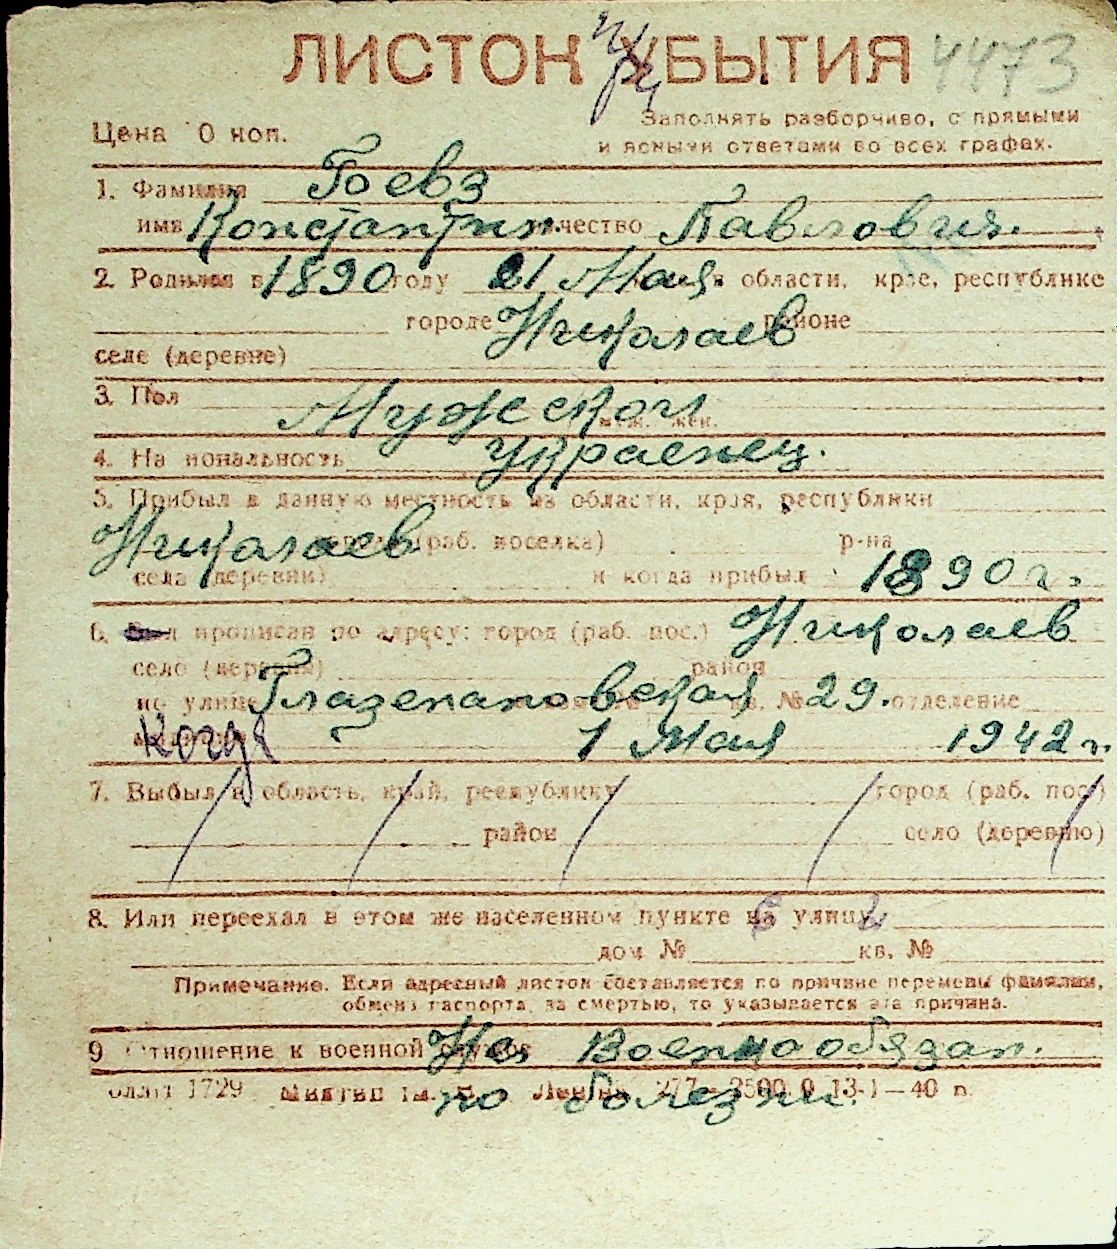 ЛИСТОК УБЫТИЯ 4473
Цена 0 коп.
Заполнять разборчиво, с прямыми
и ясными ответами во всех графах.
1. Фамилия Гоевз
имя Константин отчество Павлович.
2. Родился в 1890 году 21 Мая в области, крае, республике
городе Николаев районе
селе (деревне)
3. Пол Мужской
муж. жен.
4. На иональность Украенец.
5. Прибыл в данную местность из области, края, республики
Николаев (раб. поселка) р-на
села (деревни) и когда прибыл 1890 г.
6. прописан по адресу: город (раб. пос.) Николаев
село (деревня) район
по улице Глазенаповская кв. № 29. отделение
Когда 1 Мая 1942 г.
7. Выбыл в область, край, республику город (раб. пос.)
район село (деревню)
8. Или переехал в этом же населенном пункте на улицу
дом № кв. №
Примечание. Если адресный листок составляется по причине перемены фамилии,
обмена паспорта, за смертью, то указывается эта причина.
9 Отношение к военной службе Не Военнообязан.
1729 277 - 2500 0 13-I—40 г.
по болезни.